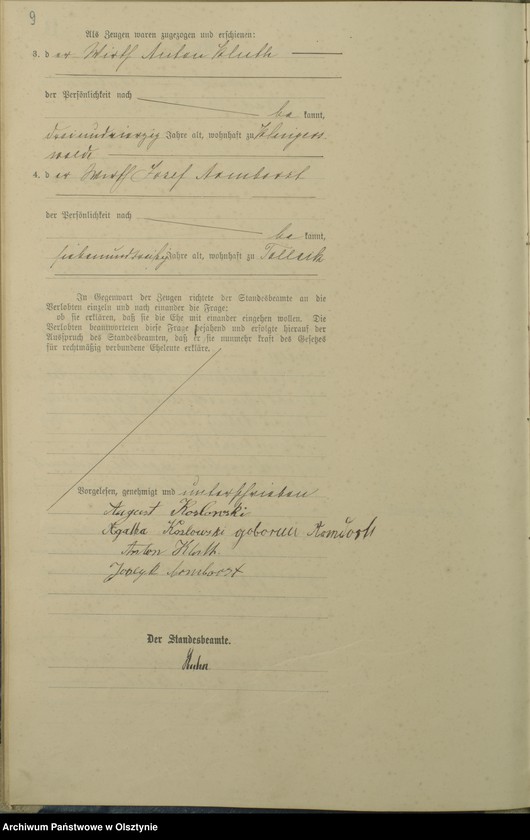 9
Als Zeugen waren zugezogen und erschienen:
3. d er Wirth Anton Kluth
der Persönlichkeit nach
be kannt,
Jahre alt, wohnhaft zu Klingers
walde
4. d er Wirth Josef
der Persönlichkeit nach
be kannt,
Jahre alt, wohnhaft zu Tollack
In Gegenwart der Zeugen richtete der Standesbeamte an die
Verlobten einzeln und nach einander die Frage:
ob sie erklären, daß sie die Ehe mit einander eingehen wollen. Die
Verlobten beantworteten diese Frage bejahend und erfolgte hierauf der
Ausspruch des Standesbeamten, daß er sie nunmehr kraft des Gesetzes
für rechtmäßig verbundene Eheleute erkläre.
Vorgelesen, genehmigt und unterschrieben
August Koslowski
Agatha Koslowski geborene
Anton Kluth
Der Standesbeamte.
Archiwum Państwowe w Olsztynie